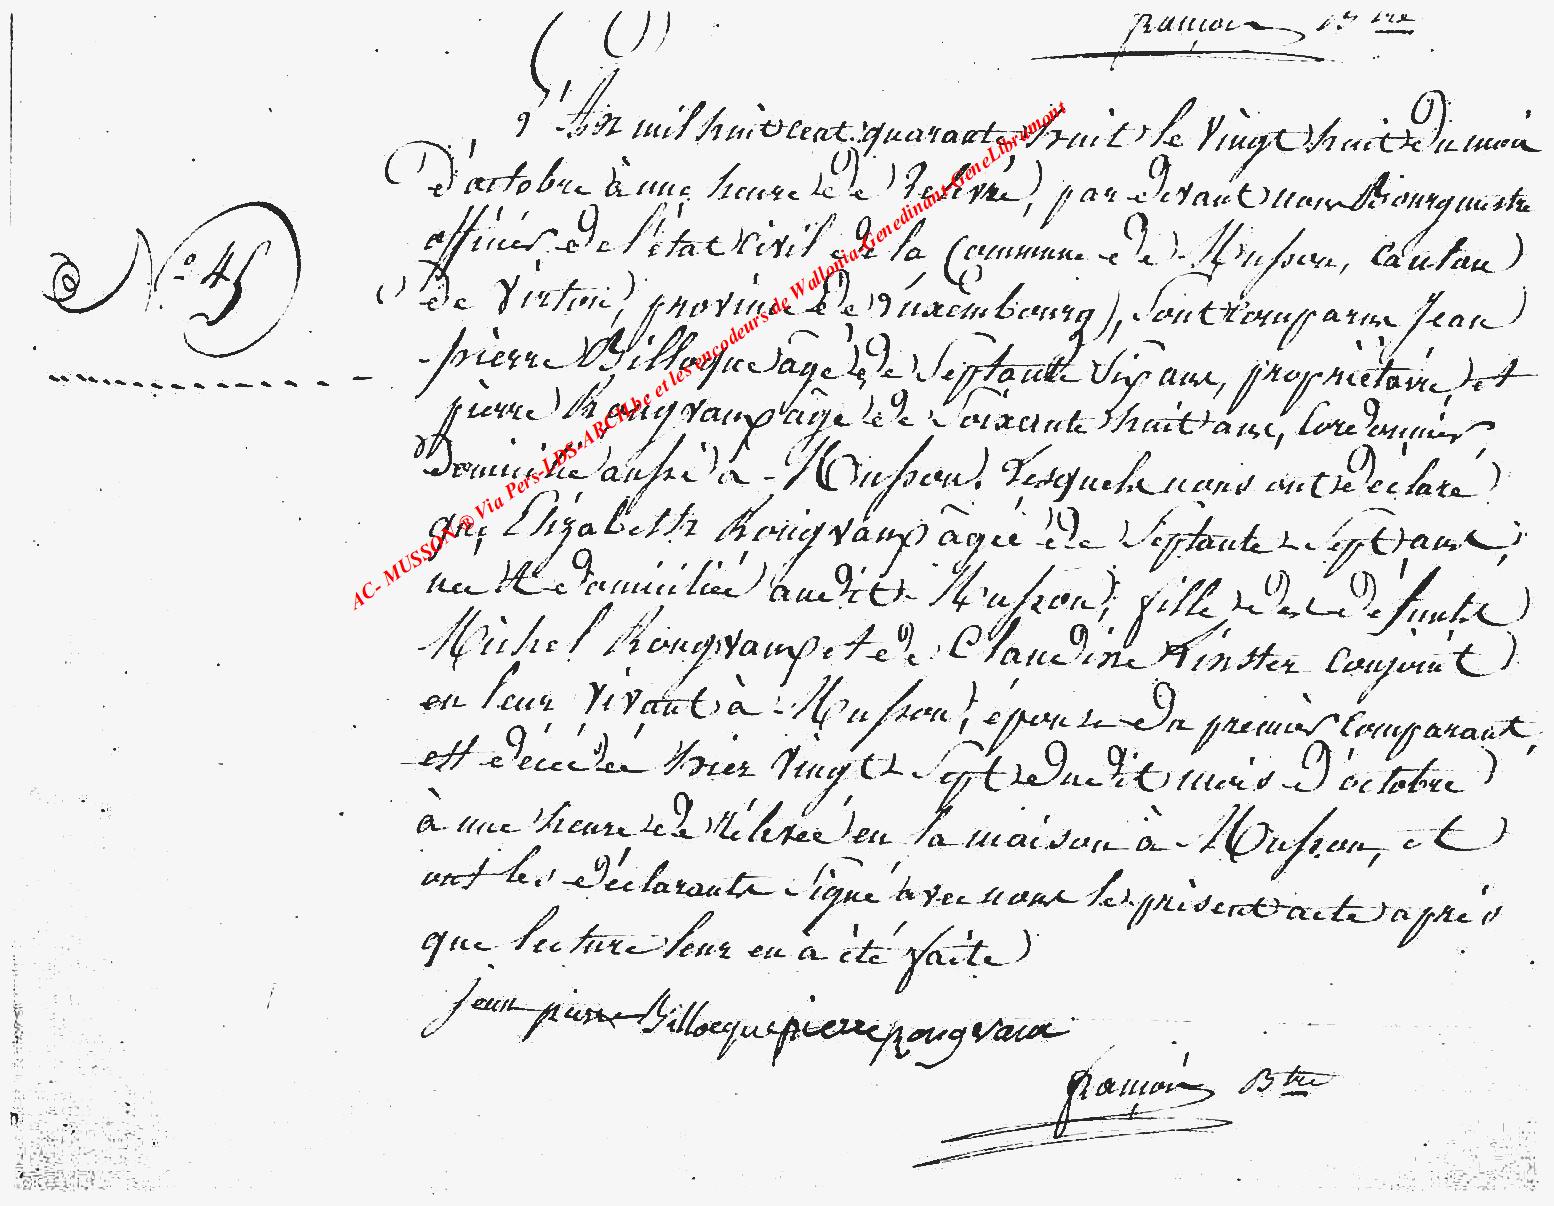 françois Bstre
L'An mil huit cent quarante huit le vingt huit du mois
d'octobre à une heure de relevée, par devant nous Bourgmestre
officier de l'état civil de la Commune de Musson, canton
de Virton, province de Luxembourg, sont comparus Jean
pierre Billocque âgé de septante six ans, propriétaire, et
pierre Rongvaux âgé de soixante huit ans, Cordonnier,
N.º 45
domicilié aussi à Musson, Lesquels nous ont déclaré
que Elizabeth Rongvaux âgée de septante sept ans,
née et domiciliée audit Musson, fille des défunts
Michel Rongvaux et de Claudine Kinster conjoint
en leur vivant à Musson, épouse du premier comparant,
est décédée hier vingt sept dudit mois d'octobre
à une heure de rélevée en la maison à Musson, et
ont les déclarants signé avec nous le présent acte après
que lecture leur en à été faite
jean pierre Billocque pierre rongvaux
françois Btre
AC- MUSSON ® Via Pers-LDS-ARCH.be et les encodeurs de Wallonia-Genedinant-GeneLibramont